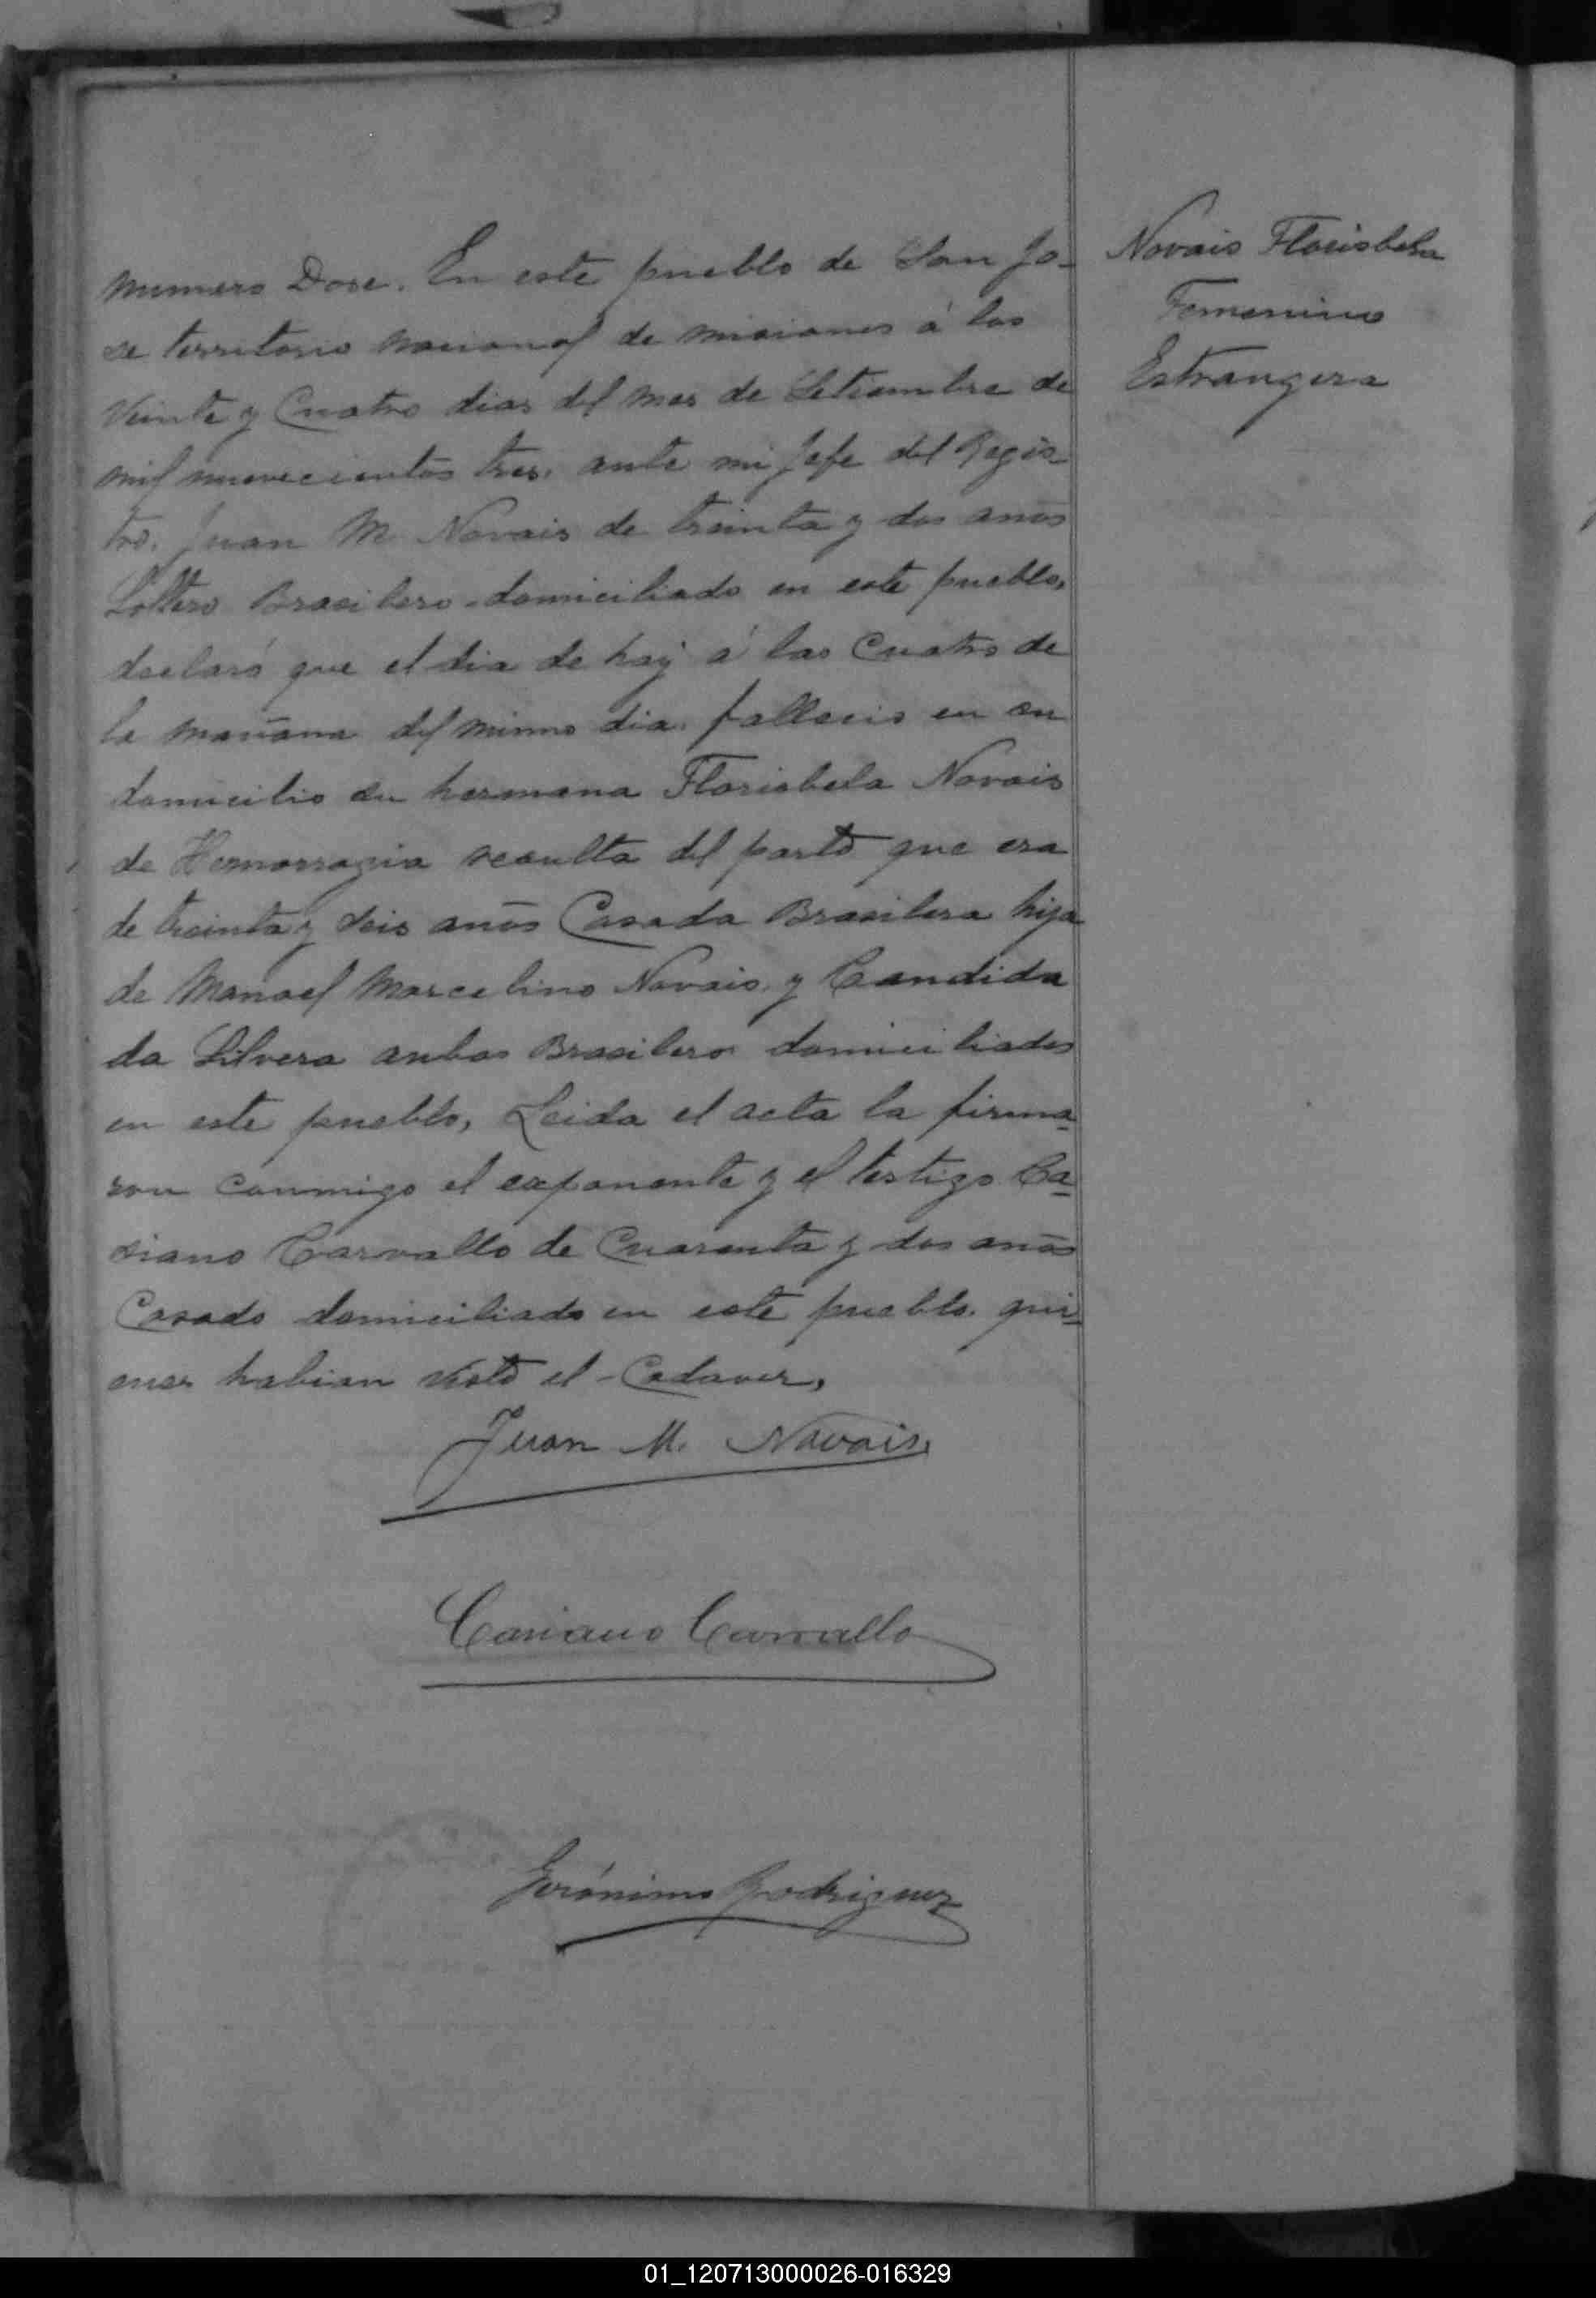 numero Dose. En este pueblo de San Jo-
se territorio nacional de misiones á los
Veinte y Cuatro dias del mes de Setiembre de
mil nuevecientos tres, ante mi Jefe del Regis-
tro. Juan M Novais de treinta y dos anos
Soltero Brasilero domiciliado en este pueblo,
declaró que el dia de hoy á las Cuatro de
la mañana del mismo dia fallecio en su
domicilio su hermana Florisbela Novais
de Hemorragia resulta del parto que era
de treinta y seis anos Casada Brasilera hija
de Manoel Marcelino Novais y Candida
da Silvera anbos Brasileros domiciliados
en este pueblo, Leida el acta la firma-
ron conmigo el exponente y el testigo Ca-
siano Carvallo de Cuarenta y dos anos
Casado domiciliado en este pueblo. qui-
enes habian visto el Cadaver,
Juan M. Novais
Casiano Carvallo
Gerónimo Rodriguez
Novais Florisbela
Femenino
Estrangera
01_120713000026-016329